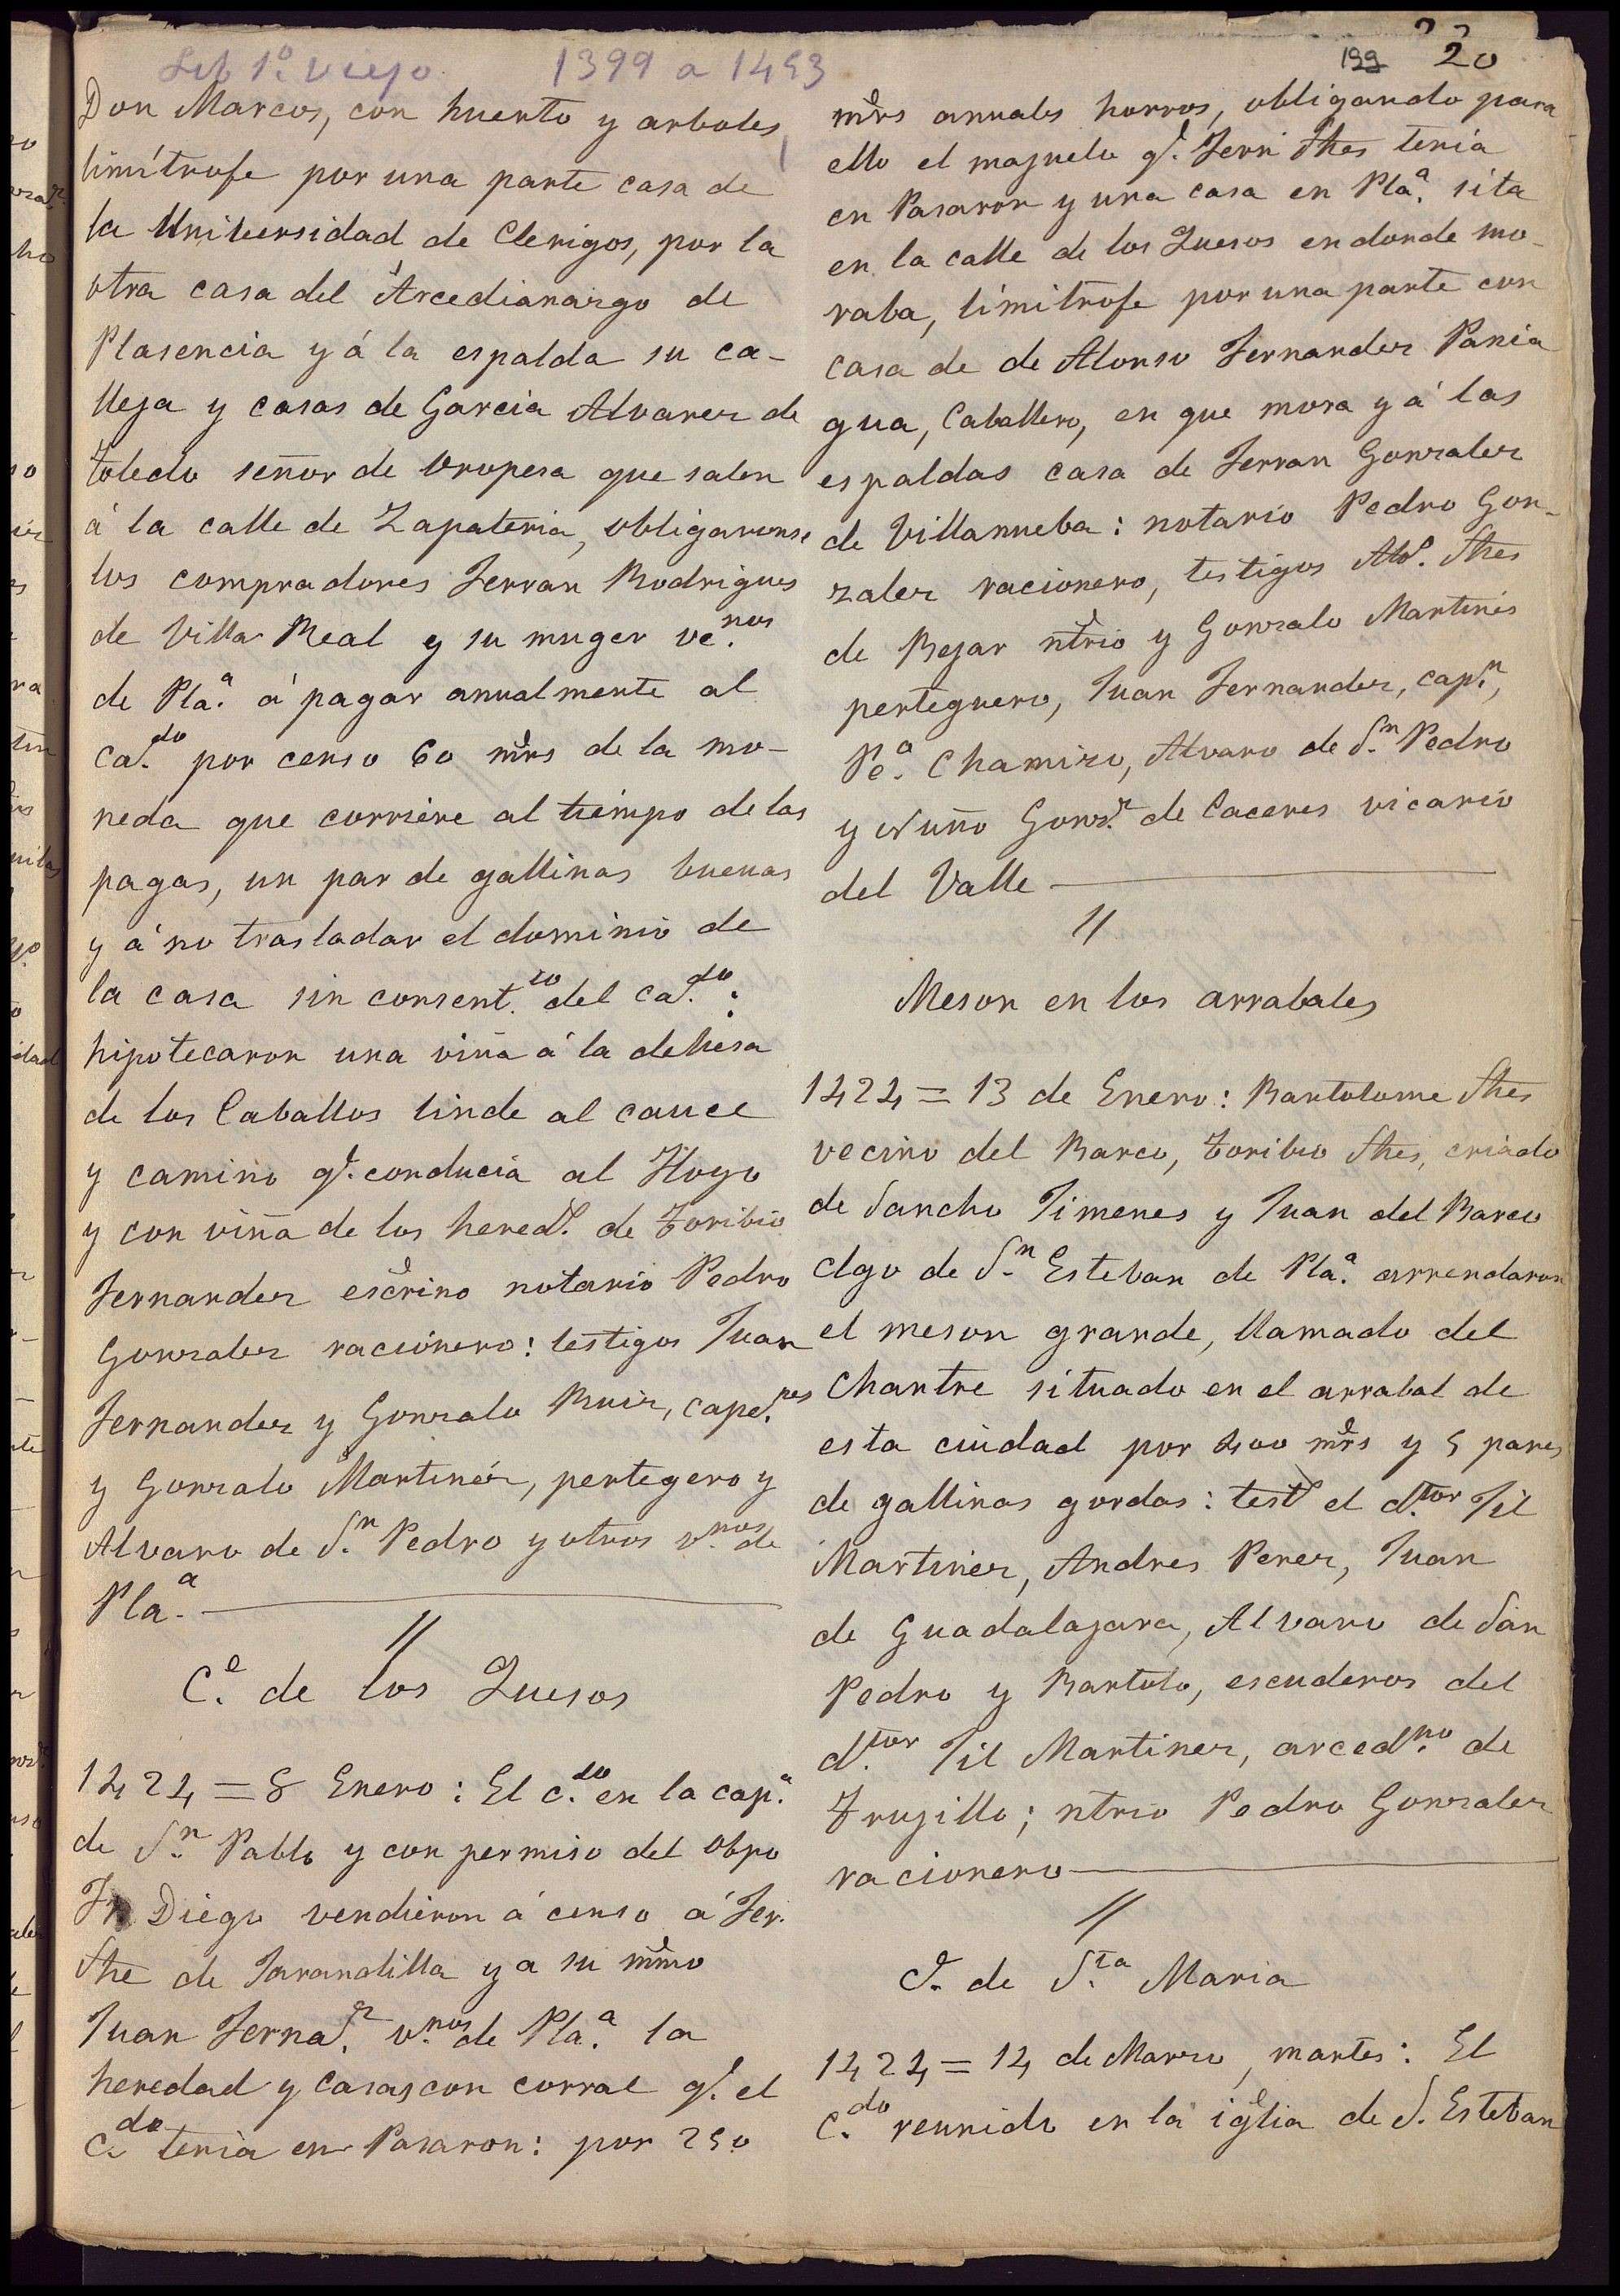 Lib 1º. Viejo 1399 a 1453
199 20
Don Marcos, con huerto y arboles,
limítrofe por una parte casa de
la Unibersidad de Clerigos, por la
otra casa del Arcedianazgo de
Plasencia y á la espalda su ca-
lleja y casas de Garcia Alvarez de
Toledo señor de Oropesa que salen
á la calle de Zapateria, obligaronse
los compradores Ferran Rodrigues
de Villa Real y su muger ve.nos
de Pla.a á pagar anualmente al
Ca.do por censo 60 mrs de la mo-
neda que corriere al tiempo de las
pagas, un par de gallinas buenas
y á no trasladar el dominio de
la casa sin consent.to del ca.do:
hipotecaron una viña á la dehesa
de los Caballos linde al cauce
y camino q.e conducia al Hoyo
y con viña de los hered.s de Toribio
Fernandez escrino notario Pedro
Gonzalez racionero: testigos Juan
Fernandez y Gonzalo Ruiz, cape.nes
y Gonzalo Martinéz, pertegero y
Alvaro de S.n Pedro y otros v.nos de
Pla.a
//
C.e de los Quesos
1424 = 8 Enero: El c.do en la cap.a
de S.n Pablo y con permiso del Obpo
Fr Diego vendieron á censo á Fer.
Shez de Jarandilla y a su mmo
Juan Ferna.z v.nos de Pla.a la
heredad y casas con corral q.e el
C.do tenia en Pasaron: por 250
mrs anuales horros, obligando para
ello el majuelo q.e Fern Shes tenia
en Pasaron y una casa en Pla.a sita
en la calle de los Quesos en donde mo-
raba, límitrofe por una parte con
casa de de Alonso Fernandez Pania
gua, Caballero, en que mora y á las
espaldas casa de Ferran Gonzalez
de Villanueba: notario Pedro Gon-
zalez racionero, testigos Alo. Shes
de Bejar ntrio y Gonzalo Martinés
perteguero, Juan Fernandez, cap.n,
Pe.o Chamizo, Alvaro de S.n Pedro
y Nuño Gonz.z de Caceres vicario
del Valle
//
Meson en los arrabales
1424 = 13 de Enero: Bartolome Shes
vecino del Barco, Toribio Shes, criado
de Sancho Jimenes y Juan del Barco
clgo de S.n Esteban de Pla.a arrendaron
el meson grande, llamado del
Chantre situado en el arrabal de
esta ciudad por 400 mrs y 5 pares
de gallinas gordas: test.s el d.tor Jil
Martinez, Andres Perez, Juan
de Guadalajara, Alvaro de San
Pedro y Bartolo, escuderos del
d.tor Jil Martinez, arced.no de
Trujillo; ntrio Pedro Gonzalez
racionero
//
C.e de S.ta Maria
1424 = 14 de Marzo, martes: El
C.do reunido en la iglia de S. Esteban